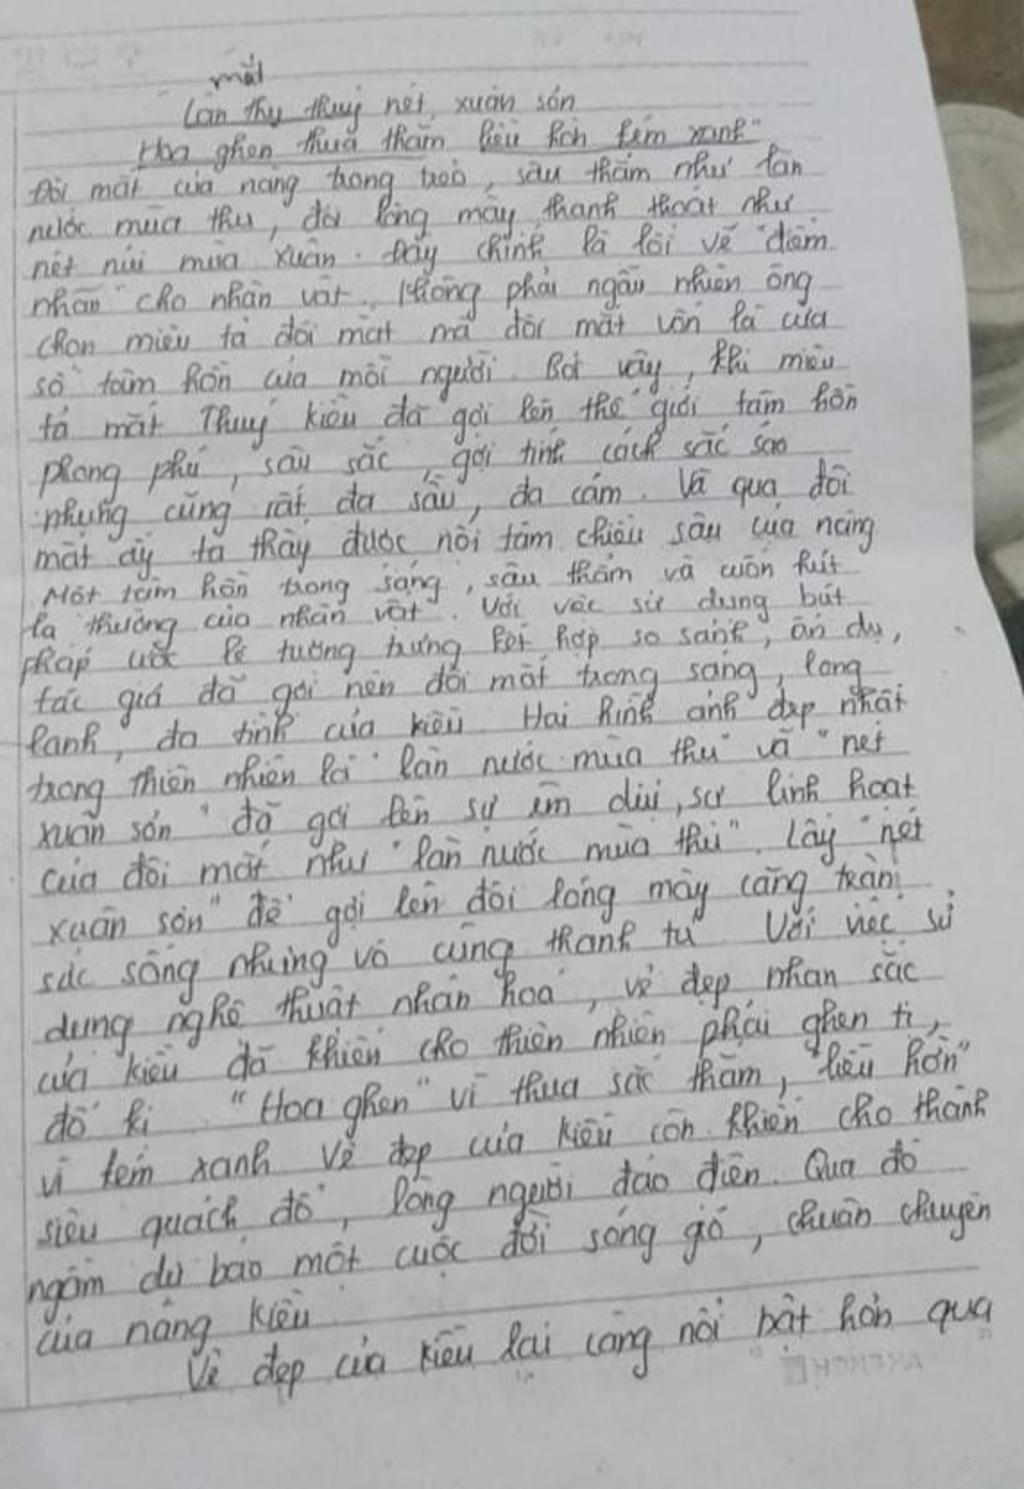 mắt
Làn thy thuỷ nét xuân sơn
Hoa ghen thua thắm liễu hờn kém xanh"
Đôi mắt của nàng trong trẻo, sâu thẳm như làn
nước mùa thu, đôi lông mày thanh thoát như
nét núi mùa xuân. Đây chính là lối vẽ "điểm
nhãn" cho nhân vật. Không phải ngẫu nhiên ông
chọn miêu tả đôi mắt mà đôi mắt vốn là cửa
sổ tâm hồn của mỗi người. Bởi vậy, khi miêu
tả mắt Thuý Kiều đã gợi lên thế giới tâm hồn
phong phú, sâu sắc, gợi tính cách sắc sảo
nhưng cũng rất đa sầu, đa cảm. Và qua đôi
mắt ấy ta thấy được nội tâm chiều sâu của nàng
Một tâm hồn trong sáng, sâu thẳm và cuốn hút
lạ thường của nhân vật. Với việc sử dụng bút
pháp ước lệ tượng trưng kết hợp so sánh, ẩn dụ,
tác giả đã gợi nên đôi mắt trong sáng, long
lanh, đa tình của Kiều. Hai hình ảnh đẹp nhất
trong thiên nhiên là "làn nước mùa thu" và "nét
xuân sơn" đã gợi lên sự êm dịu, sự linh hoạt
của đôi mắt như "làn nước mùa thu". Lấy "nét
xuân sơn" để gợi lên đôi lông mày căng tràn
sức sống nhưng vô cùng thanh tú. Với việc sử
dụng nghệ thuật nhân hoá, vẻ đẹp nhan sắc
của Kiều đã khiến cho thiên nhiên phải ghen tị,
đố kị. "Hoa ghen" vì thua sắc thắm, "liễu hờn"
vì kém xanh. Vẻ đẹp của Kiều còn khiến cho thành
siêu quách đổ, lòng người đảo điên. Qua đó
ngầm dự báo một cuộc đời sóng gió, chuân chuyên
của nàng Kiều.
Vẻ đẹp của Kiều lại càng nổi bật hơn qua